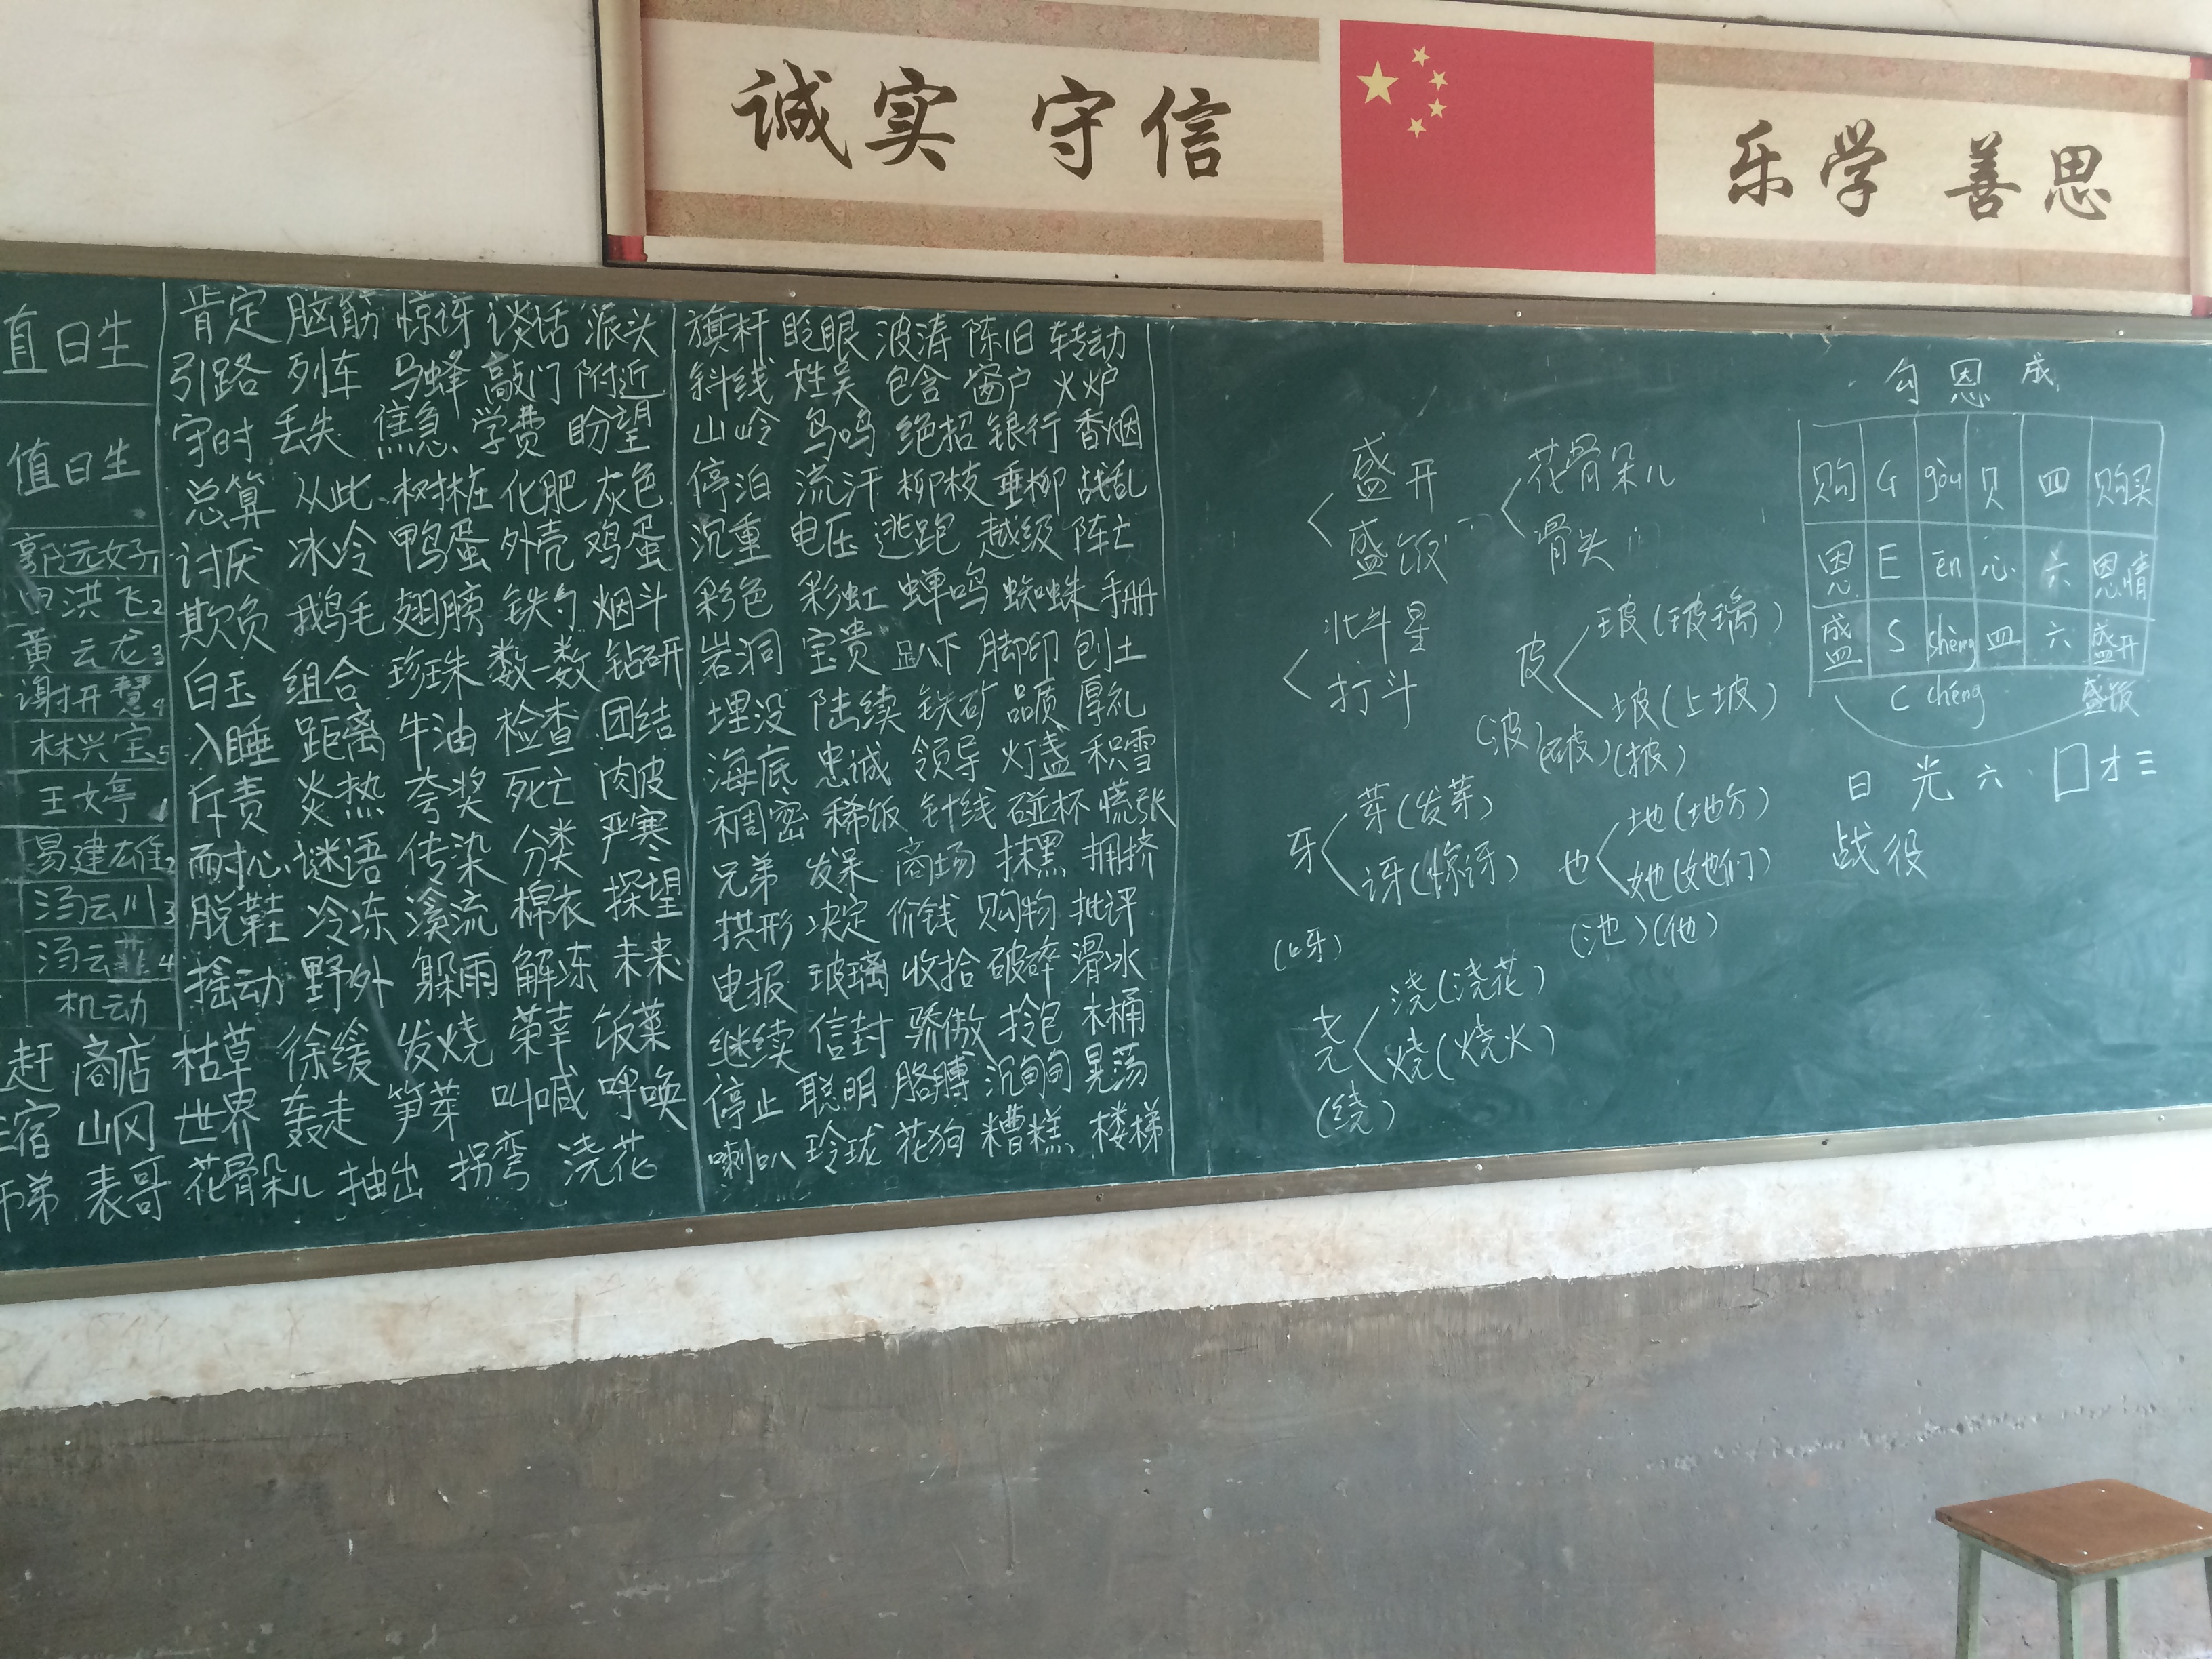 诚实 守信
乐学 善思
值日生
值日生
郭远好1
洪飞2
黄云龙3
林兴宝5
王婷1
易建雄2
汤云川3
汤云4
机动
赶 商店
宿 山冈
表哥
肯定 脑筋 惊讶 谈话 派头
引路 列车 马蜂 敲门 附近
守时 丢失 焦急 学费 盼望
总算 从此 树桩 化肥 灰色
讨厌 冰冷 鸭蛋 外壳 鸡蛋
欺负 鹅毛 翅膀 铁勺 烟斗
白玉 组合 珍珠 数一数 钻研
入睡 距离 牛油 检查 团结
斥责 炎热 夸奖 死亡 肉皮
耐心 谜语 传染 分类 严寒
脱鞋 冷冻 溪流 棉衣 探望
摇动 野外 躲雨 解冻 未来
枯草 徐缓 发烧 荣幸 饭菜
世界 轰走 笋芽 叫喊 呼唤
花骨朵儿 抽出 拐弯 浇花
旗杆 眨眼 波涛 陈旧 转动
斜线 姓吴 包含 窗户 火炉
山岭 鸟鸣 绝招 银行 香烟
停泊 流汗 柳枝 垂柳 战乱
沉重 电压 逃跑 越级 阵亡
彩色 彩虹 蝉鸣 蜘蛛 手册
岩洞 宝贵 趴下 脚印 刨土
埋没 陆续 铁矿 品质 厚礼
海底 忠诚 领导 灯盏 积雪
稠密 稀饭 针线 碰杯 慌张
兄弟 发呆 商场 抹黑 拥挤
拱形 决定 价钱 购物 批评
电报 玻璃 收拾 破碎 滑冰
继续 信封 骄傲 拎包 木桶
停止 聪明 胳膊 沉甸甸 晃荡
喇叭 玲珑 花狗 糟糕 楼梯
盛开
盛饭
花骨朵儿
骨头
北斗星
打斗
皮 玻(玻璃)
坡(上坡)
(波)(破)(披)
牙 芽(发芽)
讶(惊讶)
(呀)
也 地(地方)
她(她们)
(池)(他)
尧 浇(浇花)
烧(烧火)
(绕)
勾 恩 成
购 G gòu 贝 四 购买
恩 E ēn 心 六 恩情
盛 S shèng 皿 六 盛开
C chéng 盛饭
日 光 六 口 才 三
战役